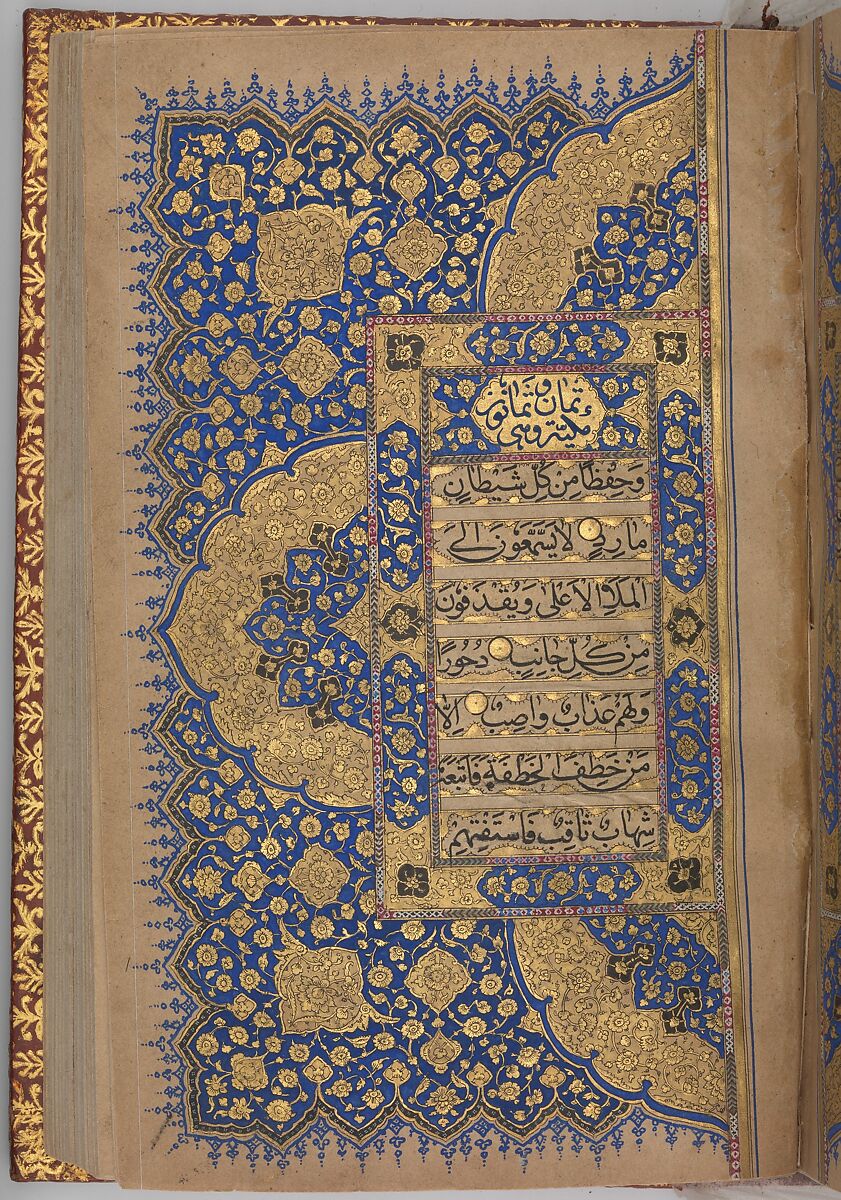 مكية وهي
ثمان وثمانون
وَحِفْظًا مِنْ كُلِّ شَيْطَانٍ
مَارِدٍ لَا يَسَّمَّعُونَ اِلَى
الْمَلَاِ الْاَعْلٰى وَيُقْذَفُونَ
مِنْ كُلِّ جَانِبٍ دُحُورًا
وَلَهُمْ عَذَابٌ وَاصِبٌ اِلَّا
مَنْ خَطِفَ الْخَطْفَةَ فَاَتْبَعَهُ
شِهَابٌ ثَاقِبٌ فَاسْتَفْتِهِمْ